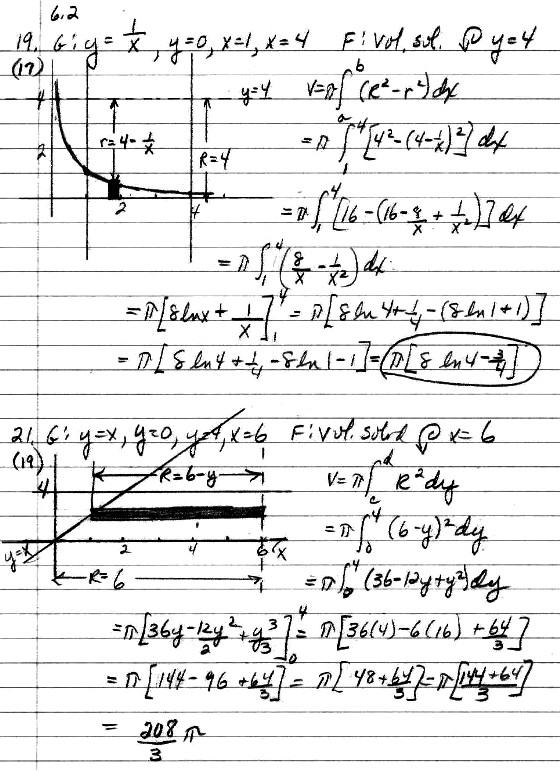 6.2
19. G: y = 1/x, y=0, x=1, x=4 F: Vol. sol. y=4
(17)
4 y=4 V=π∫_a^b (R²-r²)dx
r=4-1/x R=4
= π∫_1^4 [4²-(4-1/x)²]dx
2
2 4
= π∫_1^4 [16-(16-8/x+1/x²)]dx
= π∫_1^4 (8/x - 1/x²)dx
= π[8lnx + 1/x]_1^4 = π[8ln4+1/4-(8ln1+1)]
= π[8ln4+1/4-8ln1-1] = π[8ln4-3/4]
21. G: y=x, y=0, y=4, x=6 F: Vol. solid x=6
(19)
R=6-y V=π∫_c^d R²dy
4
= π∫_0^4 (6-y)²dy
y=x 2 4 6 x
R=6 = π∫_0^4 (36-12y+y²)dy
= π[36y-12y²/2+y³/3]_0^4 = π[36(4)-6(16)+64/3]
= π[144-96+64/3] = π[48+64/3] = π[144+64/3]
= 208/3 π